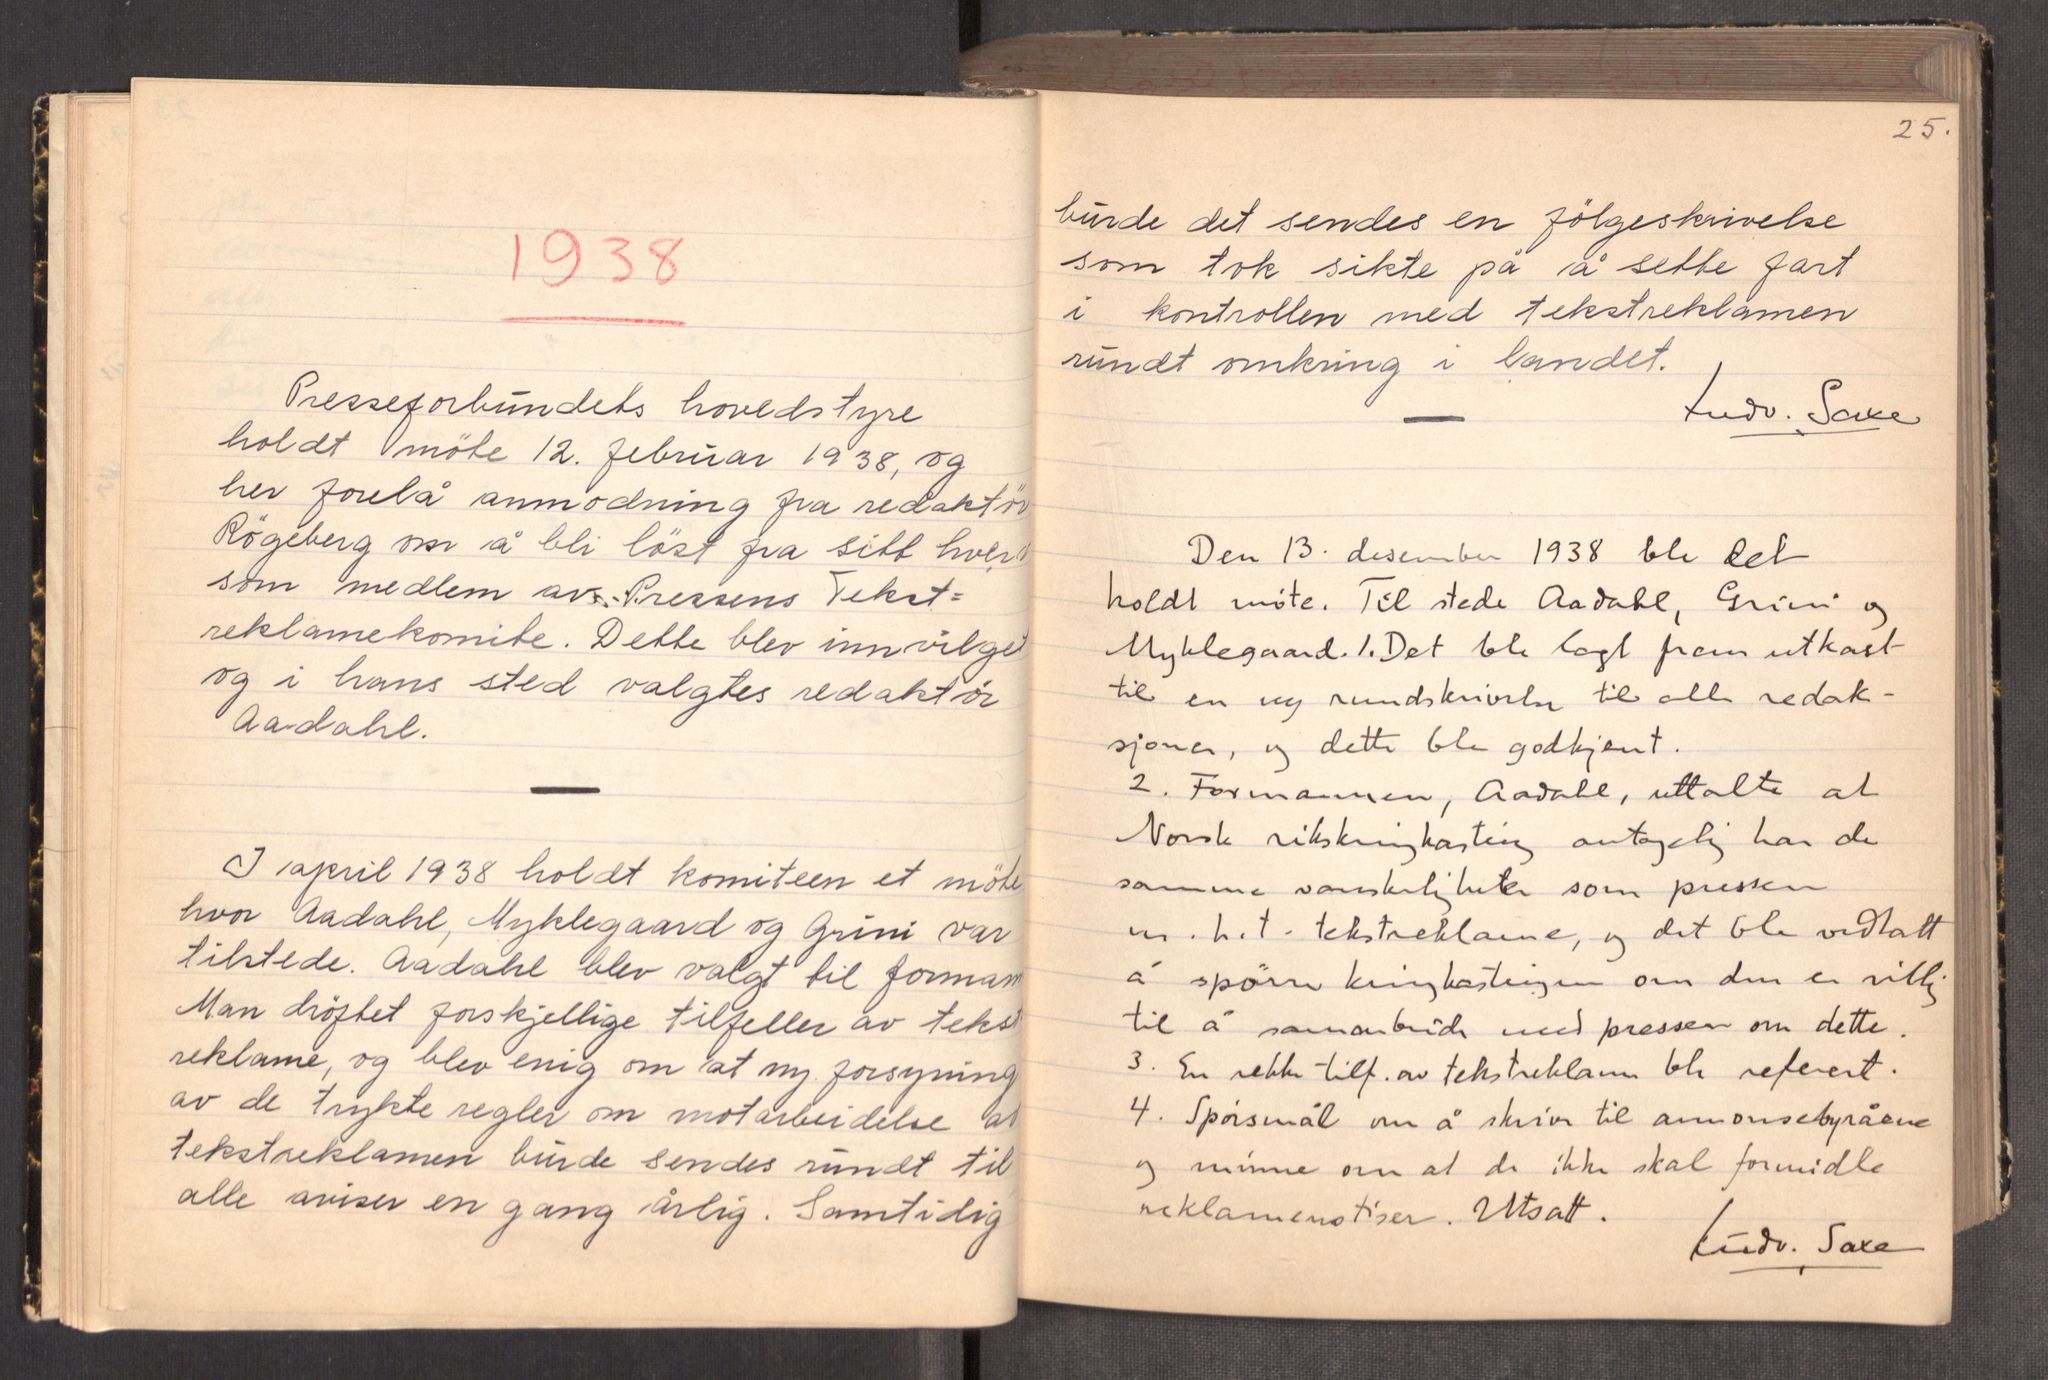 1938
Presseforbundets hovedstyre
holdt möte 12. februar 1938, og
her forelå anmodning fra redaktör
Rögeberg om å bli löst fra sitt hverv
som medlem av Pressens Tekst=
reklamekomite. Dette blev innvilget
og i hans sted valgtes redaktör
Aadahl.
I april 1938 holdt komiteen et möte
hvor Aadahl, Myklegaard og Grini var
tilstede. Aadahl blev valgt til formann
Man dröftet forskjellige tilfeller av tekst
reklame, og blev enig om at ny forsyning
av de trykte regler om motarbeidelse av
tekstreklamen burde sendes rundt til
alle aviser en gang årlig. Samtidig
25.
burde det sendes en fölgeskrivelse
som tok sikte på å sette fart
i kontrollen med tekstreklamen
rundt omkring i landet.
Ludv. Saxe
Den 13. desember 1938 ble det
holdt möte. Til stede Aadahl, Grini og
Myklegaard. 1. Det ble lagt fram utkast
til en ny rundskrivelse til alle redak-
sjoner, og dette ble godkjent.
2. Formannen, Aadahl, uttalte at
Norsk rikskringkasting antagelig har de
samme vanskeligheter som pressen
m.h.t. tekstreklame, og det ble vedtatt
å spörre kringkastingen om den er villig
til å samarbeide med pressen om dette.
3. En rekke tilf. av tekstreklame ble referert.
4. Spörsmål om å skrive til annonsebyråene
og minne om at de ikke skal formidle
reklamenotiser. Utsatt.
Ludv. Saxe